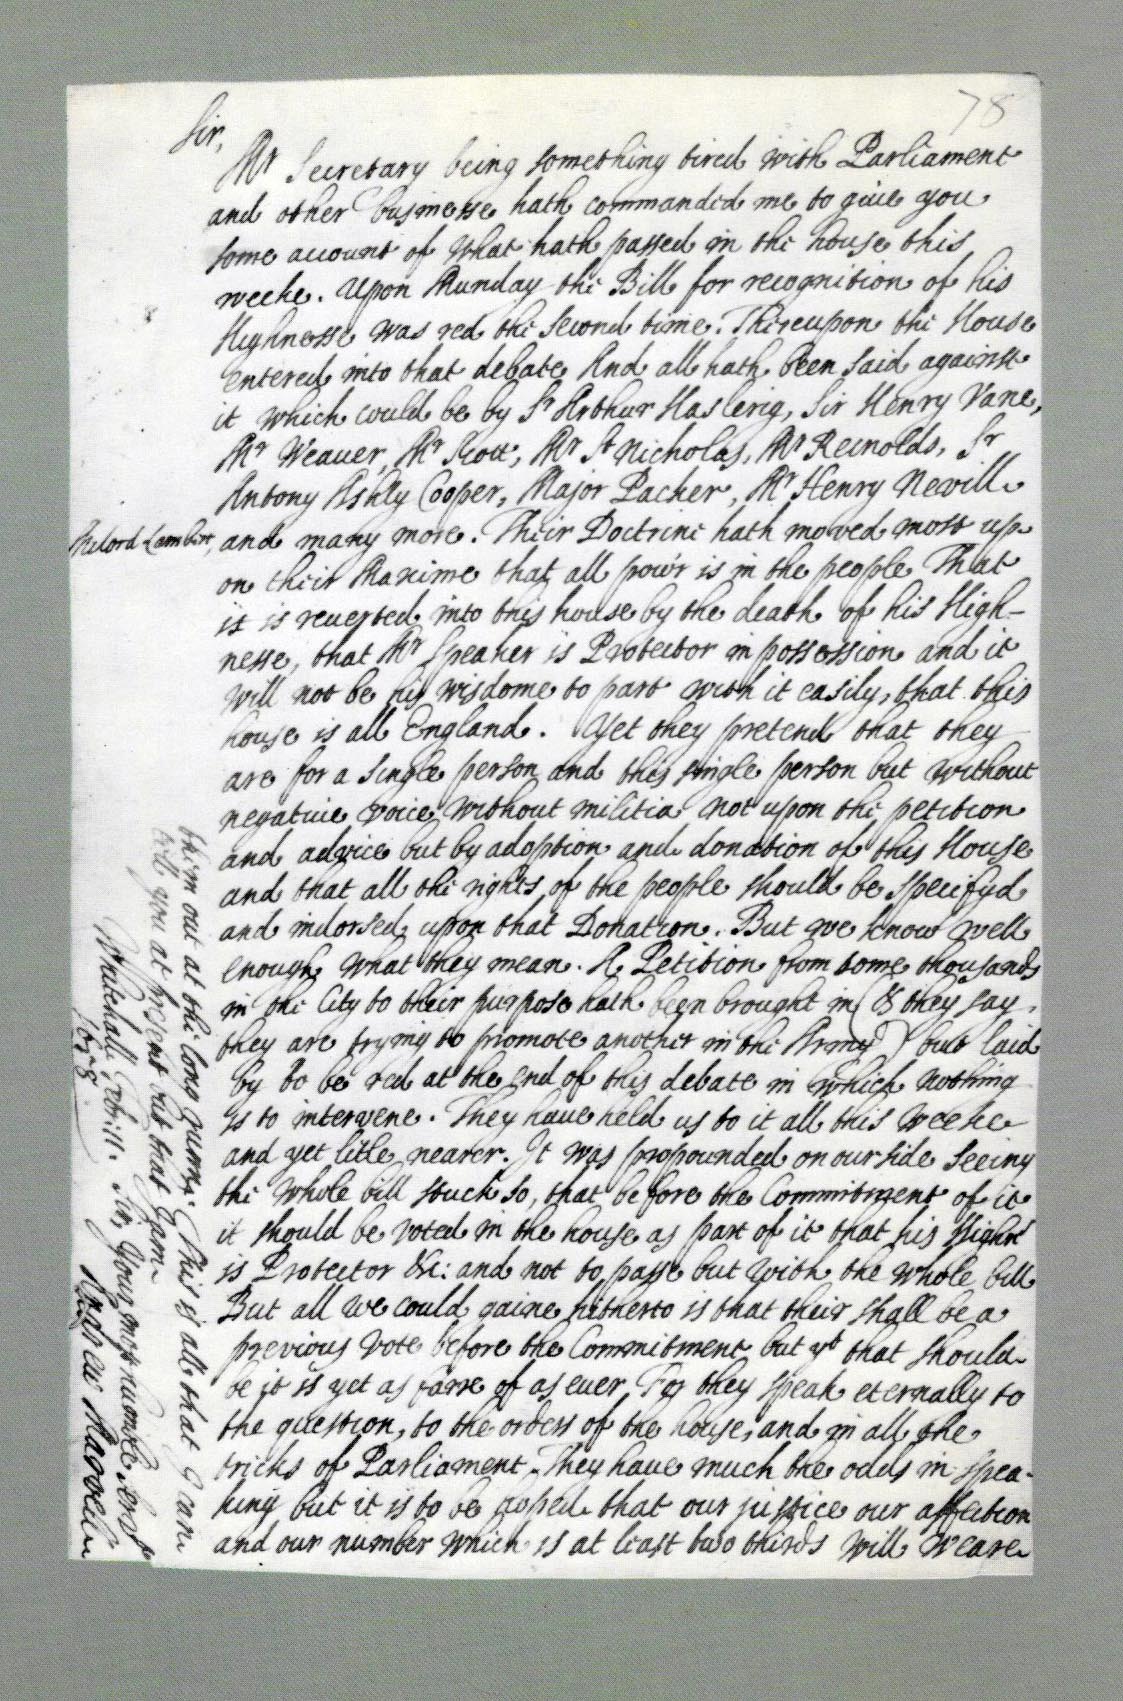 78
Sir,
Mr Secretary being something tired with Parliament
and other businesse hath commanded me to give you
some account of what hath passed in the house this
weeke. Upon Munday the Bill for recognition of his
Highnesse was red the second time. Thereupon the House
entered into that debate And all hath been said against
it which could be by Sr Arthur Haslerig, Sir Henry Vane,
Mr Weaver, Mr Scott, Mr St Nicholas, Mr Reinolds, Sr
Antony Ashly Cooper, Major Packer, Mr Henry Nevill
Melord Lambert, and many more. Their Doctrine hath moved most up
on their Maxime that all pow'r is in the people That
it is reverted into this house by the death of his High-
nesse, that Mr Speaker is Protector in possession and it
will not be his wisdome to part with it easily, that this
house is all England. Yet they pretend that they
are for a single person and this single person but without
negative voice without militia not upon the petition
and advice but by adoption and donation of this House
and that all the rights of the people should be specifyd
and indorsed upon that Donation. But we know well
enough what they mean. A Petition from some thousands
in the City to their purpose hath been brought in (& they say
they are trying to promote another in the Army) but laid
by to be red at the end of this debate in which nothing
is to intervene. They have held us to it all this weeke
and yet litle nearer. It was propounded on our side seeing
the whole bill stuck so, that before the Commitment of it
it should be voted in the house as part of it that his Highns
is Protector &c: and not to passe but with the whole bill
But all we could gaine hitherto is that their shall be a
previous vote before the Commitment but yt that should
be it is yet as farre of as ever. For they speak eternally to
the question, to the orders of the house, and in all the
tricks of Parliament. They have much the odds in spea-
king but it is to be hoped that our justice our affection
and our number which is at least two thirds will weare
them out at the long runne. This is all that I can
tell you at present but that I am
Whitehall Febr: 11. Sir, Your most humble servt
1658
Andrew Marvell